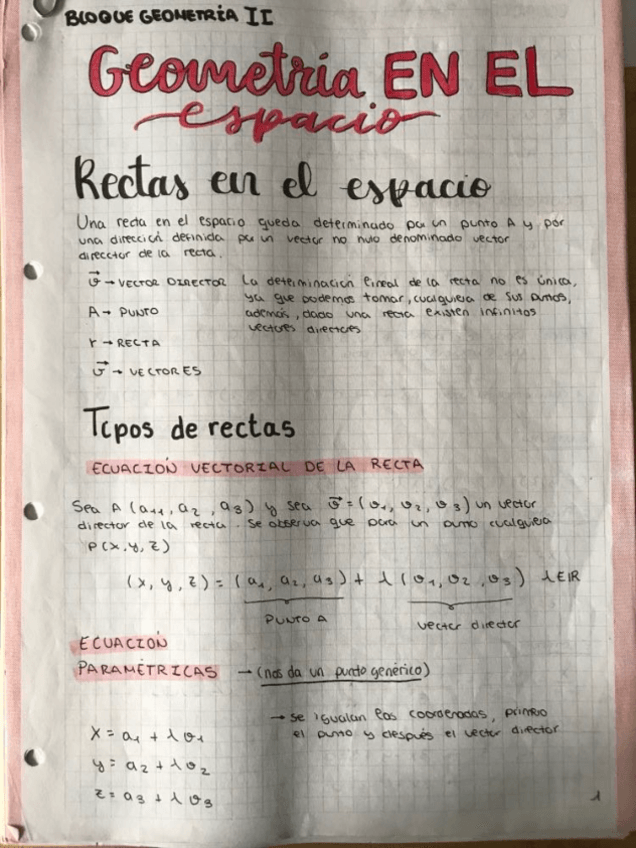 BLOQUE GEOMETRÍA II
Geometría EN EL
espacio
Rectas en el espacio
Una recta en el espacio queda determinado por un punto A y por
una dirección definida por un vector no nulo denominado vector
director de la recta.
v⃗ → VECTOR DIRECTOR La determinación lineal de la recta no es única,
ya que podemos tomar, cualquiera de sus puntos,
A → PUNTO además, dado una recta existen infinitos
vectores directores
r → RECTA
v⃗ → VECTORES
Tipos de rectas
ECUACIÓN VECTORIAL DE LA RECTA
Sea A (a₁, a₂, a₃) y sea v⃗ = (v₁, v₂, v₃) un vector
director de la recta. Se observa que para un punto cualquiera
P(x, y, z)
(x, y, z) = (a₁, a₂, a₃) + λ (v₁, v₂, v₃) λ∈IR
PUNTO A vector director
ECUACIÓN
PARAMÉTRICAS → (nos da un punto genérico)
→ se igualan las coordenadas, primero
el punto y después el vector director
x = a₁ + λv₁
y = a₂ + λv₂
z = a₃ + λv₃
1